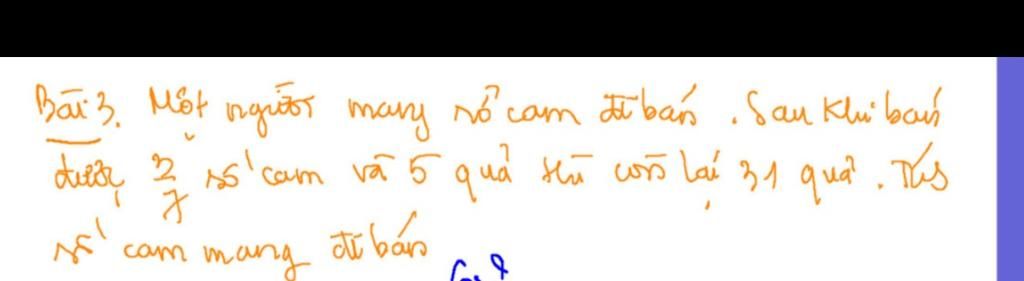 Bài 3. Một người mang rổ cam đi bán. Sau khi bán
được 3/7 số cam và 5 quả thì còn lại 31 quả. Tính
số cam mang đi bán